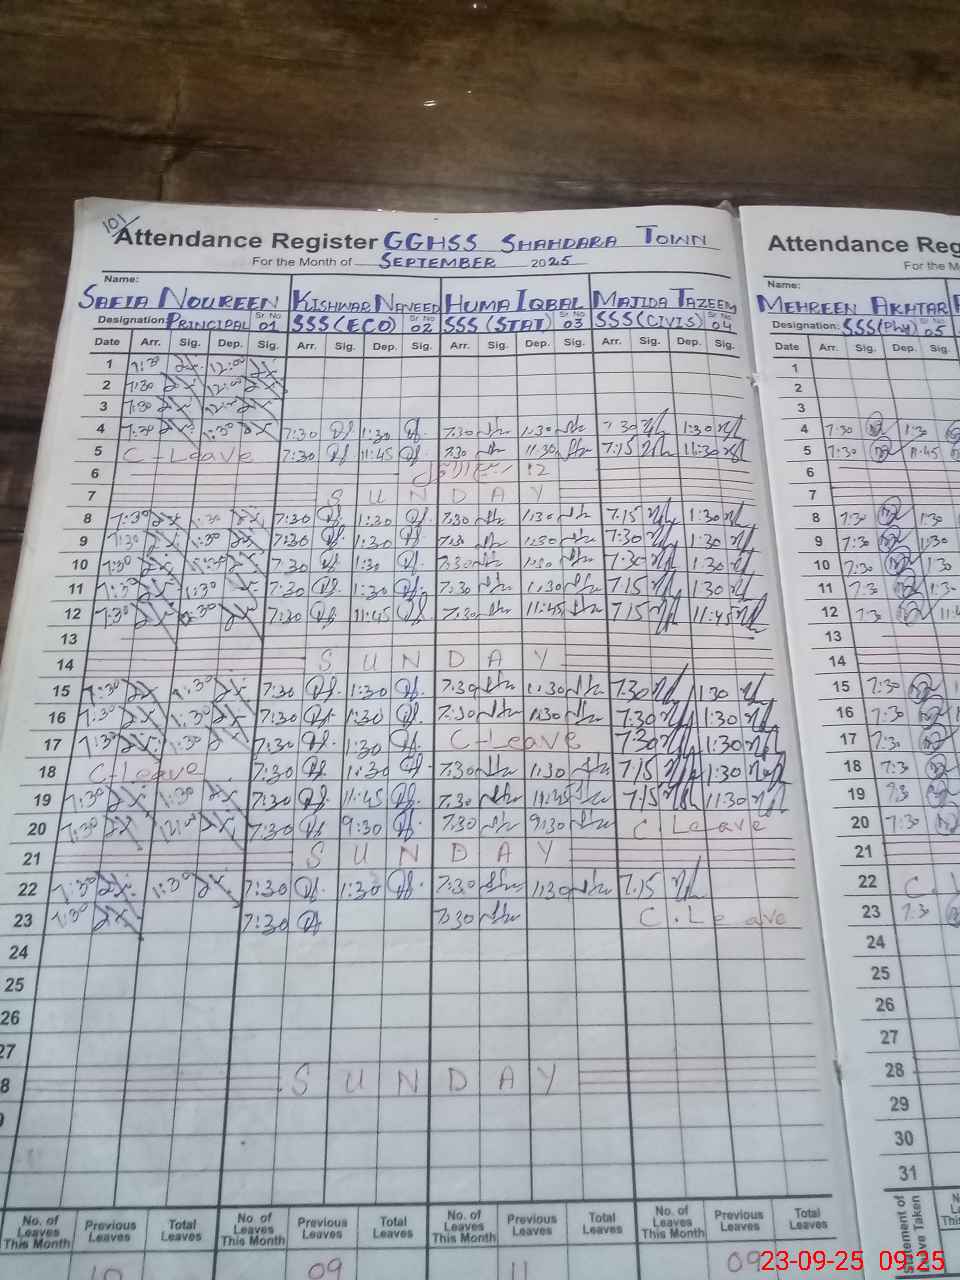 101
Attendance Register GGHSS SHAHDARA TOWN
For the Month of SEPTEMBER 2025
Name:
SAFIA NOUREEN KISHWAR NAVEED HUMA IQBAL MAJIDA TAZEEM
Designation: PRINCIPAL Sr No 01 SSS(ECO) Sr No 02 SSS (STAT) Sr No 03 SSS(CIVIS) Sr No 04
Date Arr. Sig. Dep. Sig. Arr. Sig. Dep. Sig. Arr. Sig. Dep. Sig. Arr. Sig. Dep. Sig.
1 7:30 12:00
2 7:30 12:00
3 7:30 12:00
4 7:30 1:30 7:30 1:30 7:30 1:30 7:30 1:30
5 C-Leave 7:30 11:45 7:30 11:30 7:15 11:30
6 12
7 SUNDAY
8 7:30 1:30 7:30 1:30 7:30 1:30 7:15 1:30
9 7:30 1:30 7:30 1:30 7:30 1:30 7:30 1:30
10 7:30 7:30 1:30 7:30 1:30 7:30 1:30
11 7:30 1:30 7:30 1:30 7:30 1:30 7:15 1:30
12 7:30 7:30 11:45 7:30 11:45 7:15 11:45
13
14 SUNDAY
15 7:30 1:30 7:30 1:30 7:30 1:30 7:30 1:30
16 7:30 1:30 7:30 1:30 7:30 1:30 7:30 1:30
17 7:30 1:30 7:30 1:30 C-Leave 7:30 1:30
18 C-Leave 7:30 1:30 7:30 1:30 7:15 1:30
19 7:30 1:30 7:30 11:45 7:30 11:45 7:15 11:30
20 7:30 12:00 7:30 9:30 7:30 9:30 C.Leave
21 SUNDAY
22 7:30 1:30 7:30 1:30 7:30 1:30 7:15
23 7:30 7:30 7:30 C.Leave
24
25
26
27
8 SUNDAY
9
No. of Leaves This Month Previous Leaves Total Leaves No. of Leaves This Month Previous Leaves Total Leaves No. of Leaves This Month Previous Leaves Total Leaves No. of Leaves This Month Previous Leaves Total Leaves
10 09 11 09
Attendance Reg
For the M
Name:
MEHREEN AKHTAR
Designation: SSS(Phy) Sr No 05
Date Arr. Sig. Dep. Sig.
1
2
3
4 7:30 1:30
5 7:30 11:45
6
7
8 7:30 1:30
9 7:30 1:30
10 7:30 1:30
11 7:30 1:30
12 7:30 11:4
13
14
15 7:30
16 7:30
17 7:30
18 7:30
19 7:30
20 7:30
21
22 C.L
23 7:30
24
25
26
27
28
29
30
31
Statement of Leave Taken
23-09-25 09:25